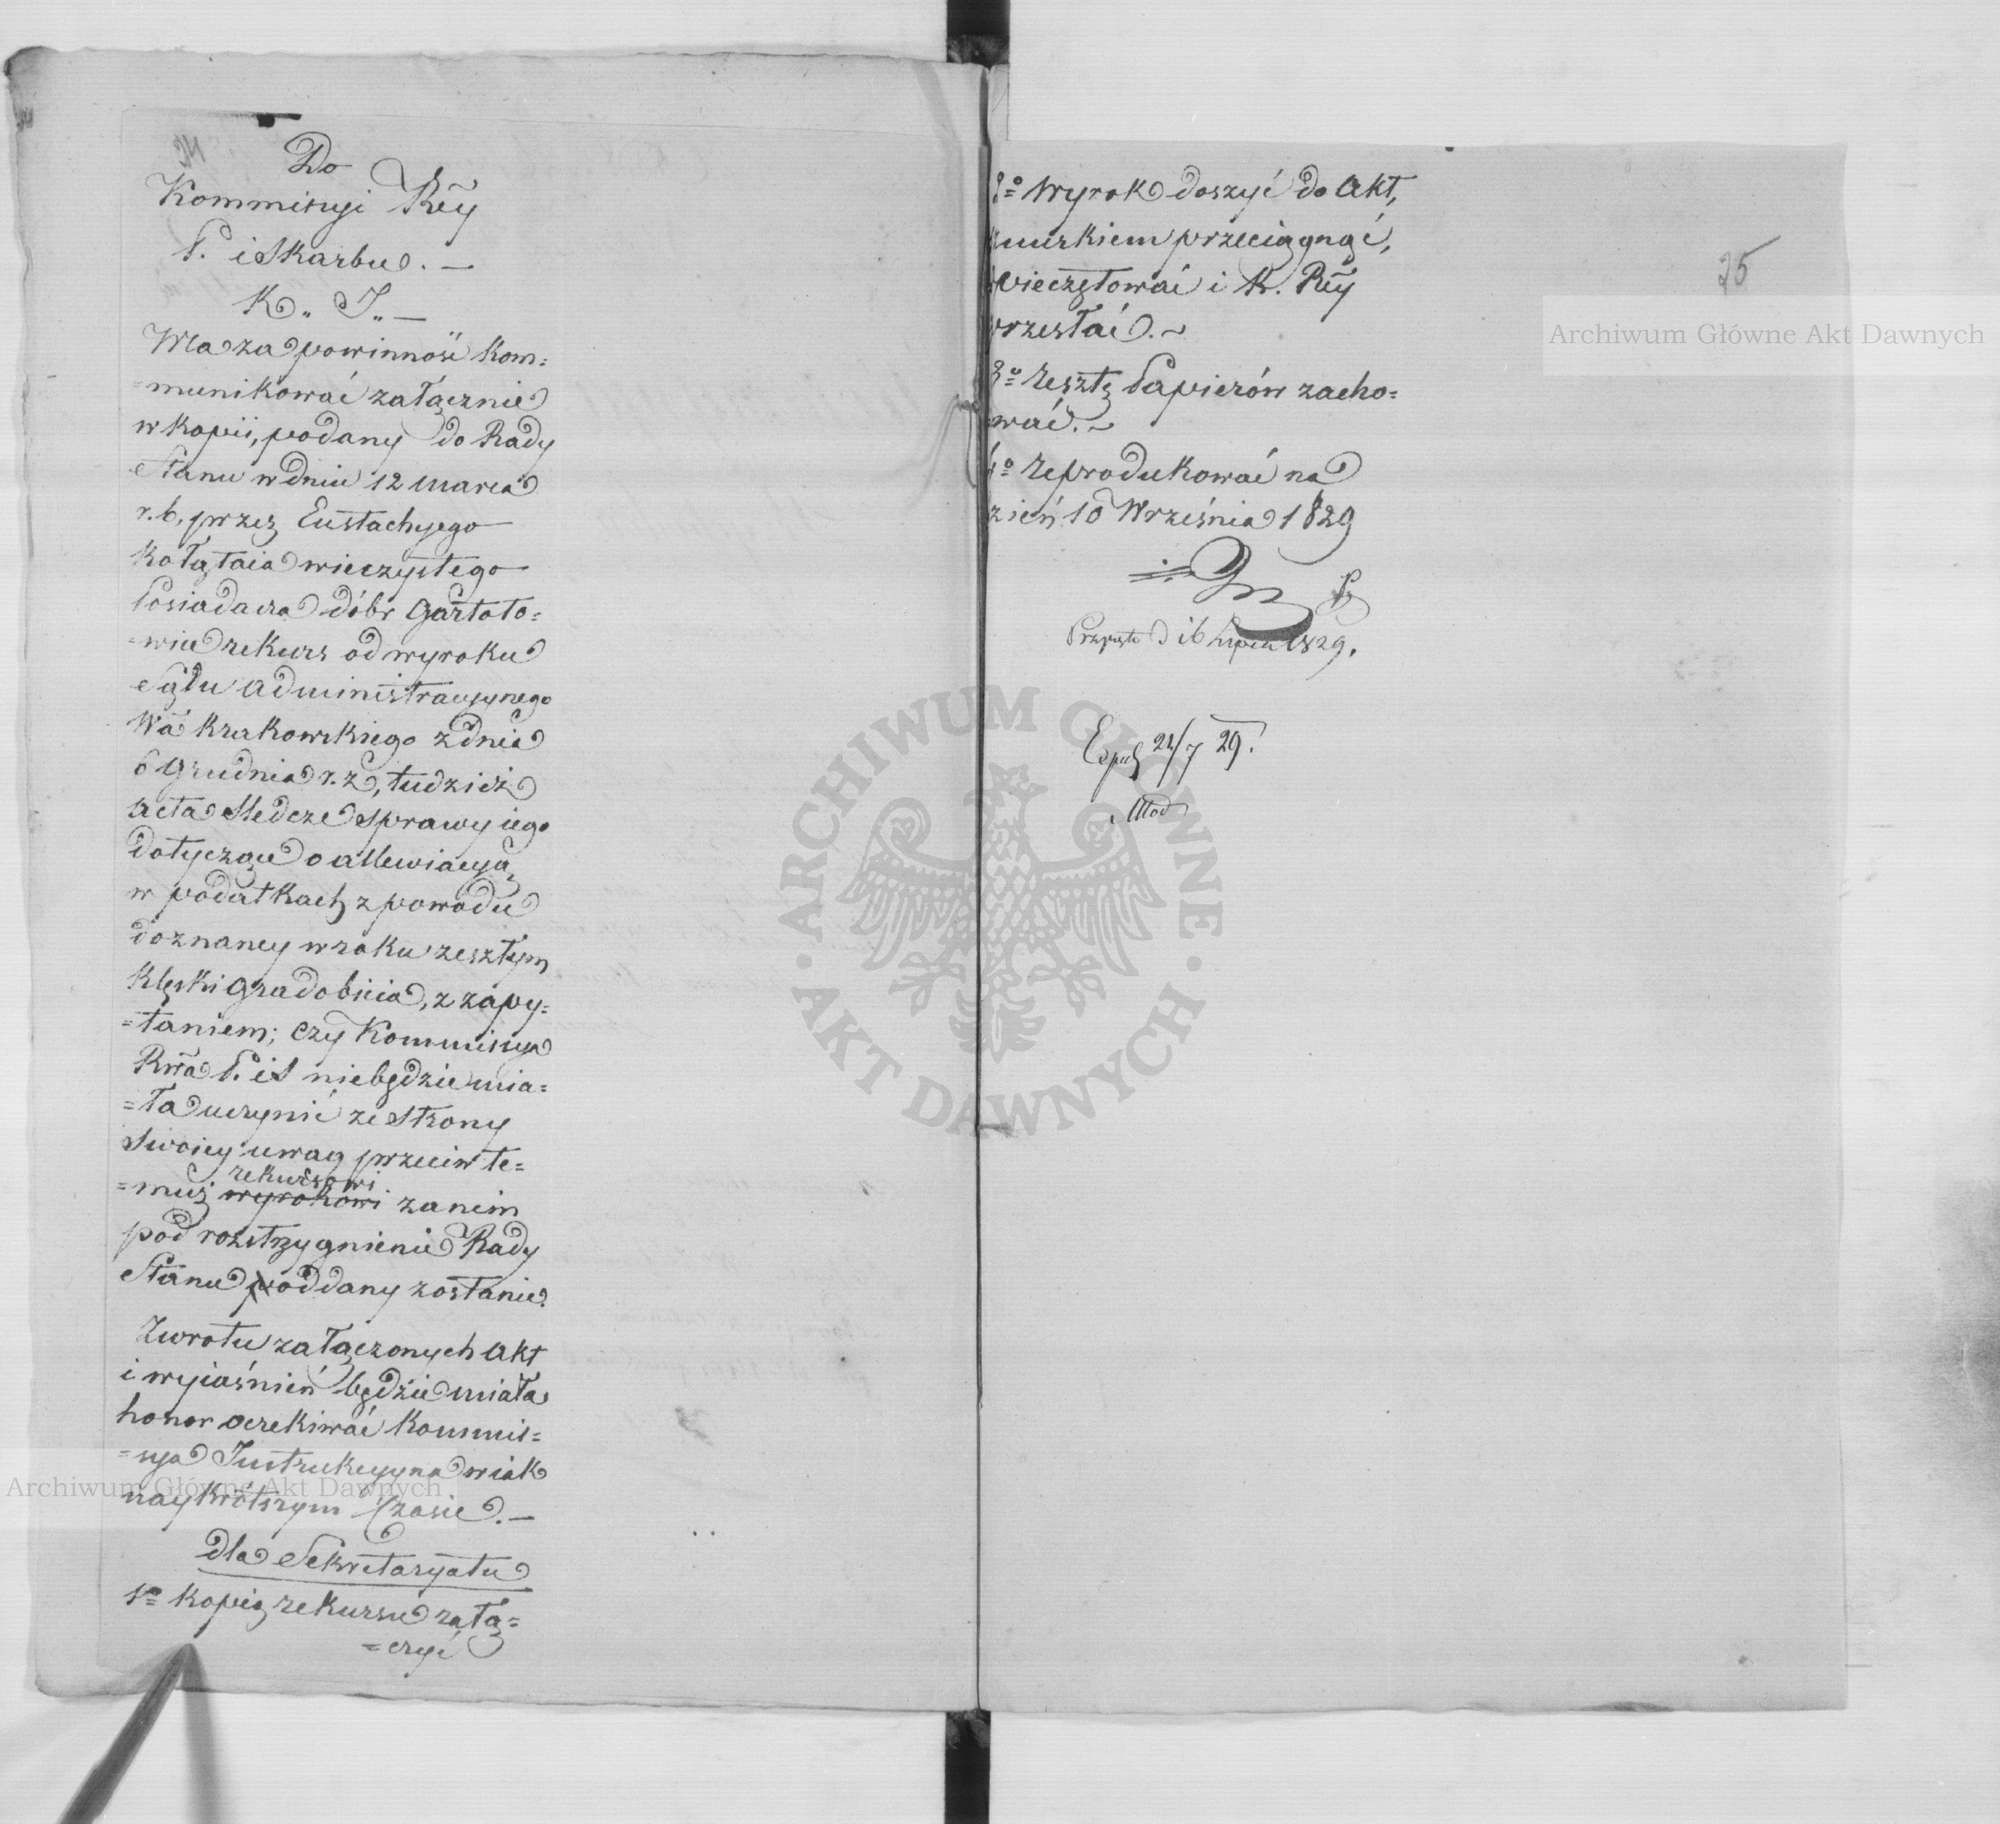 24
Do
Kommissyi Rey
P. i Skarbu. —
K. „ J. „ —
Ma za powinność kom=
=munikować załącznie
w kopii, podany do Rady
Stanu w dniu 12 marca
r. b. przez Eustachyego
Kołątaia wieczystego
Posiadacza dóbr Gartato=
=wice rekurs od wyroku
Sądu Administracyjnego
Wa Krakowskiego z dnia
6 Grudnia r. z, tudzież
Acta Śledcze sprawy iego
dotyczące o allewiacyą
w podatkach z powodu
doznaney w roku zeszłym
klęski gradobicia, z zapy=
=taniem; czy Kommissya
Rwa P. i S nie będzie mia=
=ła uczynić ze strony
swoiey uwag przeciw te=
rekursowi
=muż wyrokowi zanim
pod rozstrzygnienie Rady
Stanu poddany zostanie.
Zwrotu załączonych akt
i wyiaśnień będzie miała
honor oczekiwać Kommis=
=sya Instrukcyyna w iak
naykrótszym czasie. —
Archiwum Główne Akt Dawnych
dla Sekretaryatu
1º kopią rekursu załą=
=czyć
25
Archiwum Główne Akt Dawnych
2º Wyrok doszyć do Akt,
nurkiem przeciągnąć,
pieczętować i K. Rey
przesłać. ~
3º resztę Papierów zacho=
wać. ~
4º reprodukować na
zień 10 Września 1829
Przyięto d 16 Lipca 1829.
Exped 22/7 29.
Mod
ARCHIWUM GŁÓWNE
· AKT DAWNYCH ·